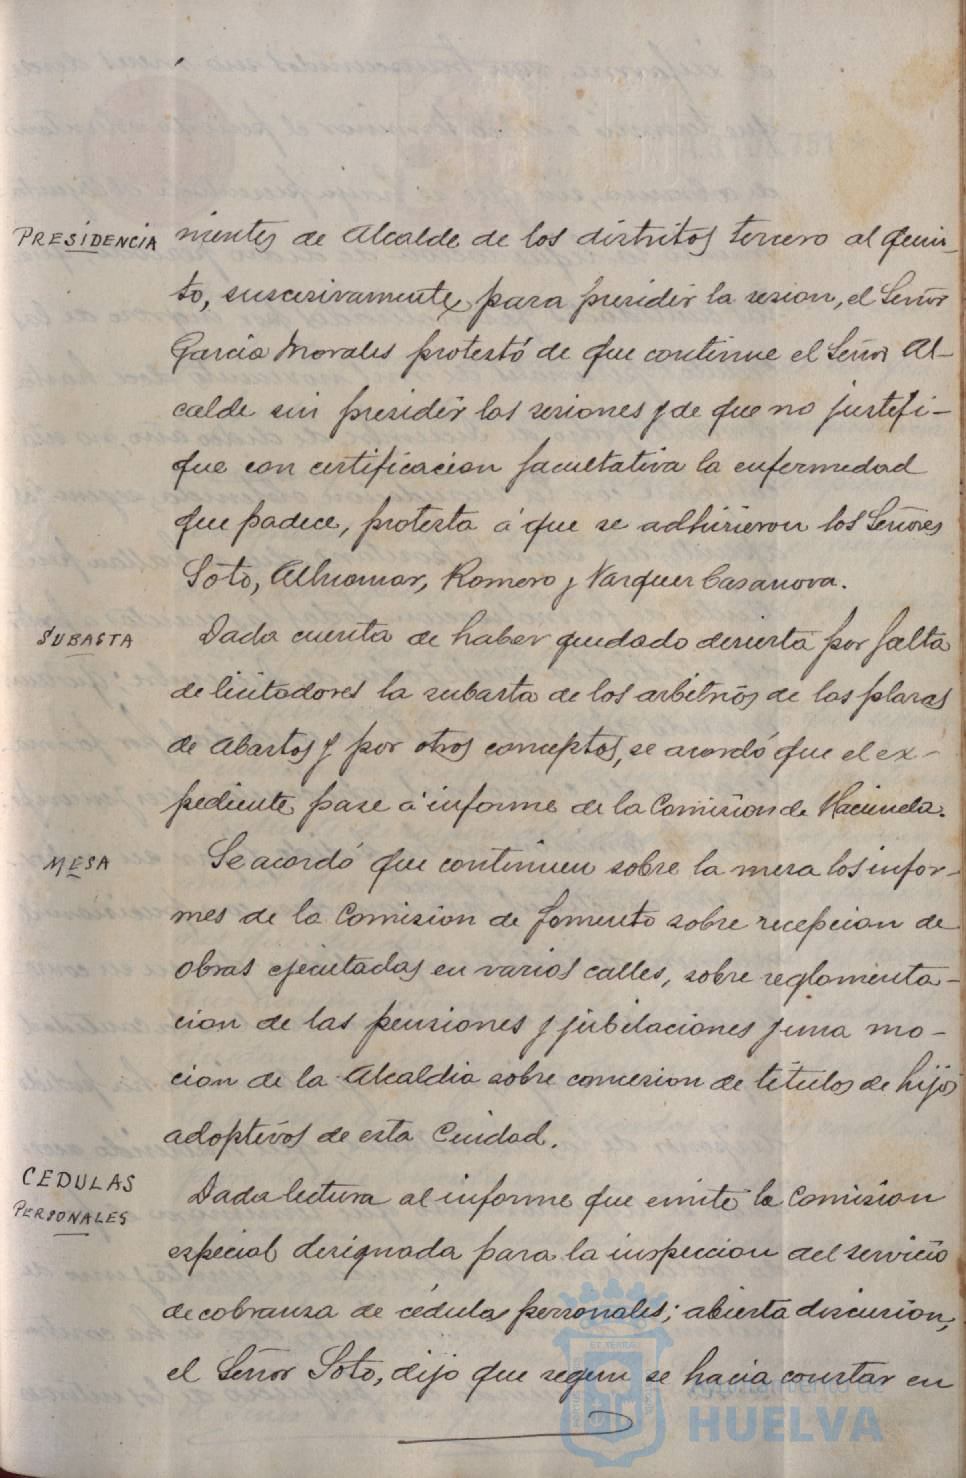 PRESIDENCIA
nientes de Alcalde de los distritos tercero al quin-
to, suscesivamente, para presidir la sesion, el Señor
Garcia Morales protestó de que continue el Señor Al-
calde sin presidir las sesiones y de que no justifi-
que con certificacion facultativa la enfermedad
que padece, protesta á que se adhirieron los Señores
Soto, Alhmar, Romero y Vazquez Casanova.
SUBASTA
Dada cuenta de haber quedado desierta por falta
de licitadores la subasta de los arbitrios de las plazas
de Abastos y por otros conceptos, se acordó que el ex-
pediente pase á informe de la Comision de Hacienda.
MESA
Se acordó que continuen sobre la mesa los infor-
mes de la Comision de Fomento sobre recepcion de
obras ejecutadas en varias calles, sobre reglamenta-
cion de las pensiones y jubilaciones y una mo-
cion de la Alcaldia sobre concesion de titulos de hijos
adoptivos de esta Ciudad.
CEDULAS
PERSONALES
Dada lectura al informe que emite la Comision
especial designada para la inspeccion del servicio
de cobranza de cédulas personales; abierta discusion,
el Señor Soto, dijo que segun se hacia constar en
Ayuntamiento de
HUELVA